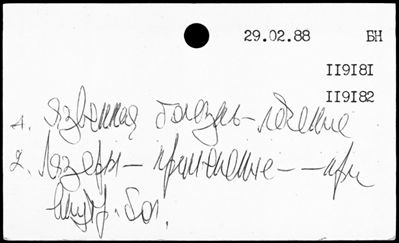 29.02.88 БН
119181
119182
1. Язвенная болезнь – лечение
2. Лазеры – применение – – при
внутр. бол.